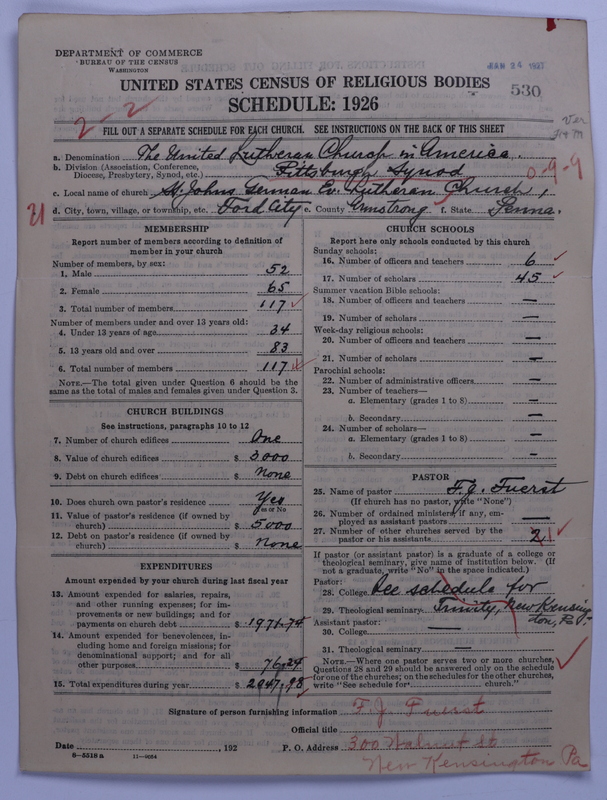 DEPARTMENT OF COMMERCE
BUREAU OF THE CENSUS
WASHINGTON
JAN 24 1927
UNITED STATES CENSUS OF RELIGIOUS BODIES
SCHEDULE: 1926
530
2-2
FILL OUT A SEPARATE SCHEDULE FOR EACH CHURCH. SEE INSTRUCTIONS ON THE BACK OF THIS SHEET
Ver
a. Denomination The United Lutheran Church in America.
b. Division (Association, Conference, Diocese, Presbytery, Synod, etc.) Pittsburgh Synod
0-9-9
c. Local name of church St. Johns German Ev. Lutheran Church,
d. City, town, village, or township, etc. Ford City e. County Armstrong f. State Penna.
MEMBERSHIP
Report number of members according to definition of
member in your church
Number of members, by sex:
1. Male 52
2. Female 65
3. Total number of members 117
Number of members under and over 13 years old:
4. Under 13 years of age 34
5. 13 years old and over 83
6. Total number of members 117
NOTE.—The total given under Question 6 should be the
same as the total of males and females given under Question 3.
CHURCH BUILDINGS
See instructions, paragraphs 10 to 12
7. Number of church edifices One
8. Value of church edifices $ 3000
9. Debt on church edifices $ None
10. Does church own pastor's residence Yes
Yes or No
11. Value of pastor's residence (if owned by
church) $ 5000
12. Debt on pastor's residence (if owned by
church) $ None
EXPENDITURES
Amount expended by your church during last fiscal year
13. Amount expended for salaries, repairs,
and other running expenses; for im-
provements or new buildings; and for
payments on church debt $ 1971.74
14. Amount expended for benevolences, in-
cluding home and foreign missions; for
denominational support; and for all
other purposes $ 76.24
15. Total expenditures during year $ 2047.98
CHURCH SCHOOLS
Report here only schools conducted by this church
Sunday schools:
16. Number of officers and teachers 6
17. Number of scholars 45
Summer vacation Bible schools:
18. Number of officers and teachers —
19. Number of scholars —
Week-day religious schools:
20. Number of officers and teachers —
21. Number of scholars —
Parochial schools:
22. Number of administrative officers —
23. Number of teachers—
a. Elementary (grades 1 to 8) —
b. Secondary —
24. Number of scholars—
a. Elementary (grades 1 to 8) —
b. Secondary —
PASTOR
25. Name of pastor F. J. Fuerst
(If church has no pastor, write "None")
26. Number of ordained ministers, if any, em-
ployed as assistant pastors —
27. Number of other churches served by the
pastor or his assistants 2 1
If pastor (or assistant pastor) is a graduate of a college or
theological seminary, give name of institution below. (If
not a graduate, write "No" in the space indicated.)
Pastor:
28. College See schedule for
29. Theological seminary Trinity, New Kensing-
ton, Pa.
Assistant pastor:
30. College —
31. Theological seminary —
NOTE.—Where one pastor serves two or more churches,
Questions 28 and 29 should be answered only on the schedule
for one of the churches; on the schedules for the other churches,
write "See schedule for church."
Signature of person furnishing information F. J. Fuerst
Official title
Date , 192 P. O. Address 300 Walnut St
New Kensington Pa
6—5518 a 11—9064